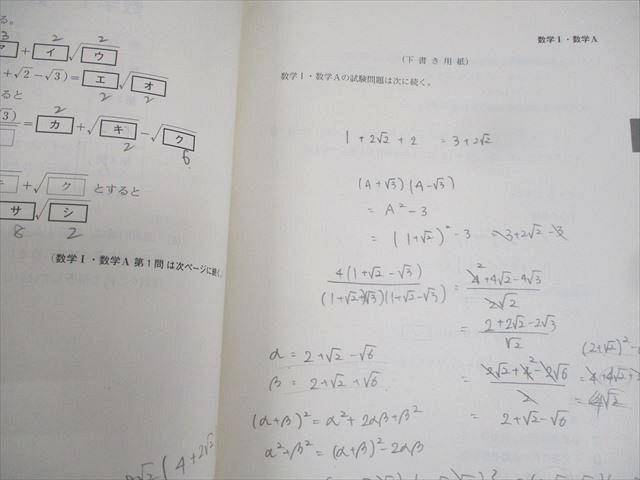 る。
3 2 2
ア + イ √ウ
+ √2 − √3) = エ √オ
2 2
ると
2
√3) = カ + √キ − √ク
2 6
+ √ク とすると
サ √シ
8 2
(数学Ⅰ・数学A 第1問は次ページに続く。
数学Ⅰ・数学A
(下 書 き 用 紙)
数学Ⅰ・数学Aの試験問題は次に続く。
1 + 2√2 + 2 = 3 + 2√2
(A + √3)(A − √3)
= A² − 3
= (1 + √2)² − 3 = 3 + 2√2 − 3
4(1 + √2 − √3) / (1 + √2 + √3)(1 + √2 − √3) = 4 + 4√2 − 4√3 / 2√2
= 2 + 2√2 − 2√3 / √2
= 2√2 + 4 − 2√6 / 2
= 2 + √2 − √6
α = 2 + √2 − √6
β = 2 + √2 + √6
(α + β)² = α² + 2αβ + β²
α² + β² = (α + β)² − 2αβ
(2 + √2)² −
= 4 + 4√2 +
= 4√2
(4 + 2√2